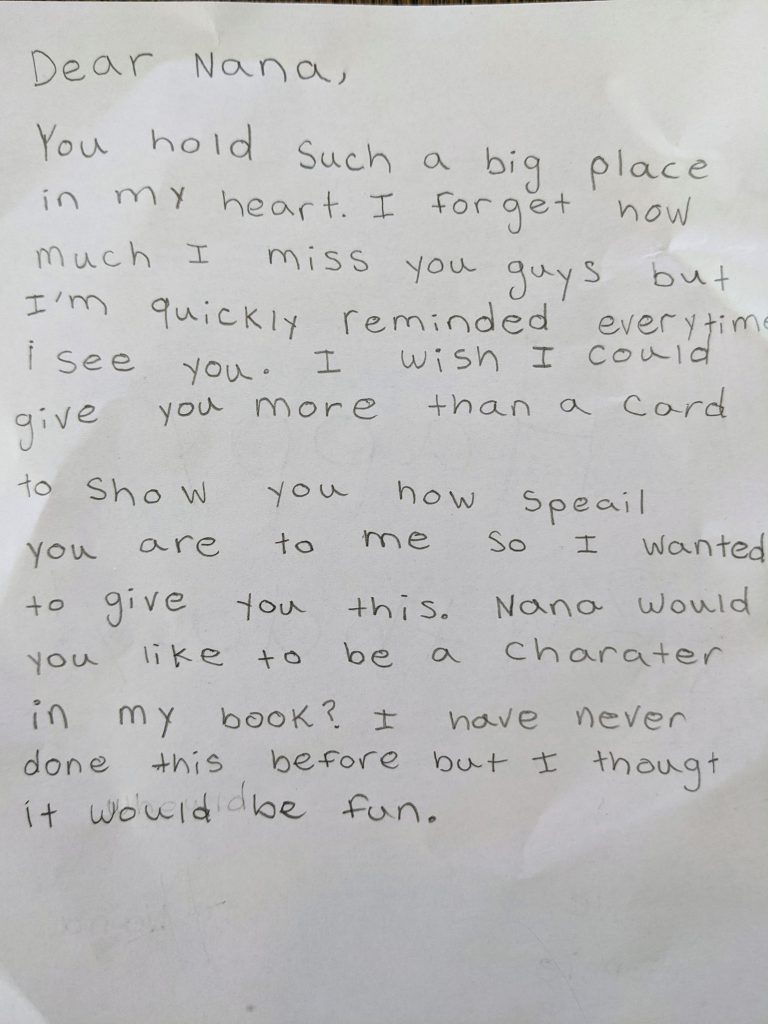 Dear Nana,
You hold such a big place
in my heart. I forget how
much I miss you guys but
I'm quickly reminded everytime
i see you. I wish I could
give you more than a card
to show you how speail
you are to me so I wanted
to give you this. Nana would
you like to be a charater
in my book? I have never
done this before but I thougt
it would be fun.